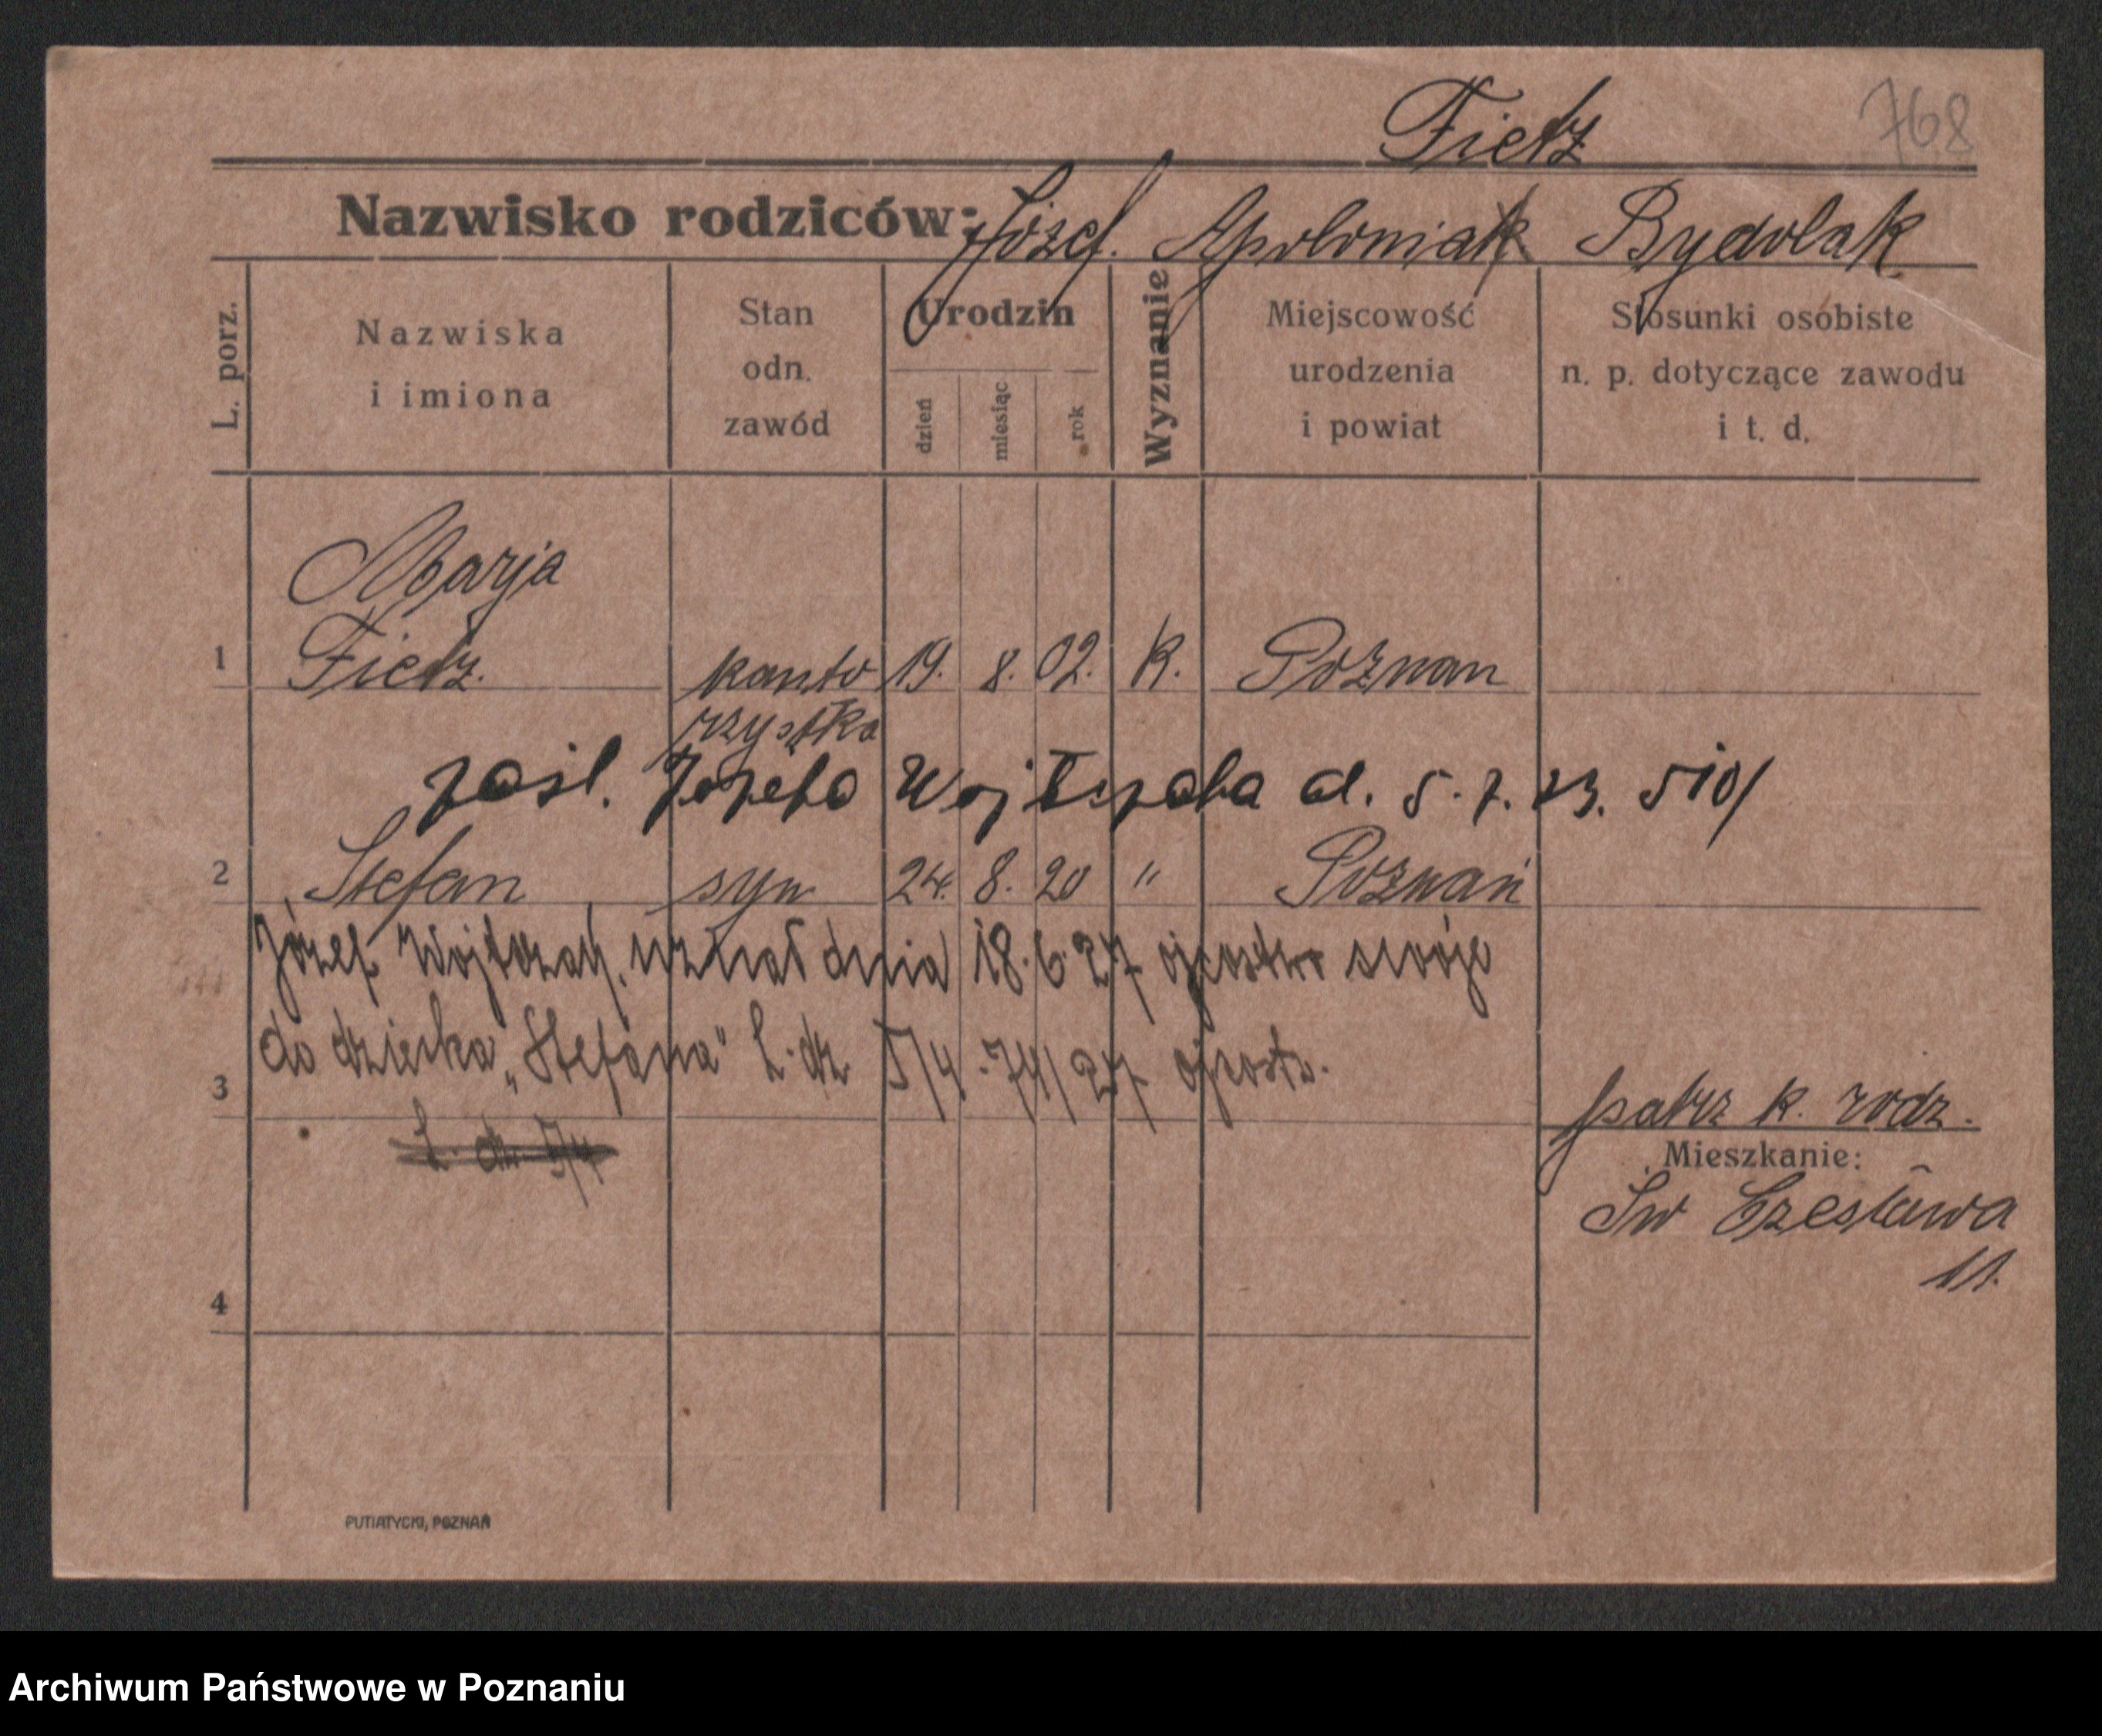 768
Fietz
Nazwisko rodziców: Józef. Apolonia Bydolak
L. porz.
Nazwiska
i imiona
Stan
odn.
zawód
Urodzin
dzień
miesiąc
rok
Wyznanie
Miejscowość
urodzenia
i powiat
Stosunki osóbiste
n. p. dotyczące zawodu
i t. d.
Marja
1 Fietz. kanto 19. 8. 02. K. Poznan
rzystka
zaśl. Józefa d. 5. 7. 23. 510/
2 Stefan syn 24. 8. 20 " Poznań
Józef uznał dnia 18.6.27 ojcostwo swoje
do dziecka „Stefana" L. dz. 5/4 - 74/27 ojcostw.
3
patrz k. rodz.
L. dz. 5/4
Mieszkanie:
Św Czesława
11.
4
PUTIATYCKI, POZNAŃ
Archiwum Państwowe w Poznaniu